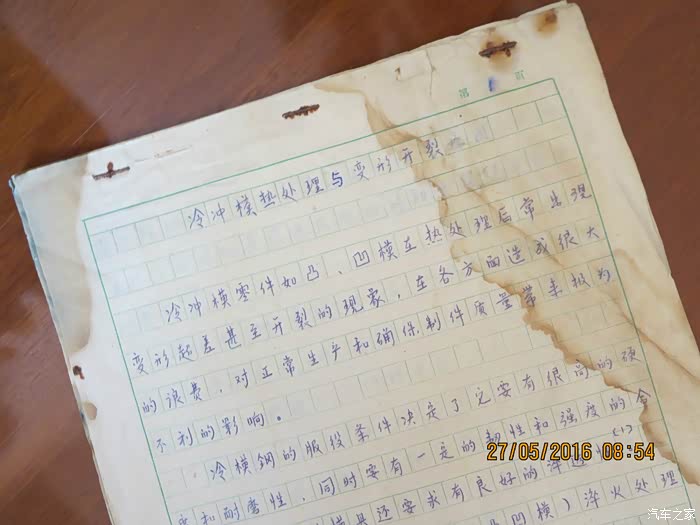 第 1 页
冷冲模热处理与变形开裂
冷冲模零件如凸、凹模在热处理后常出现
变形超差甚至开裂的现象，在各方面造成很大
的浪费，对正常生产和确保制件质量带来极为
不利的影响。
冷模钢的服役条件决定了它要有很高的硬
度和耐磨性，同时要有一定的韧性和强度的
模具还要求有良好的淬透
凸凹模）淬火处理
27/05/2016 08:54
汽车之家